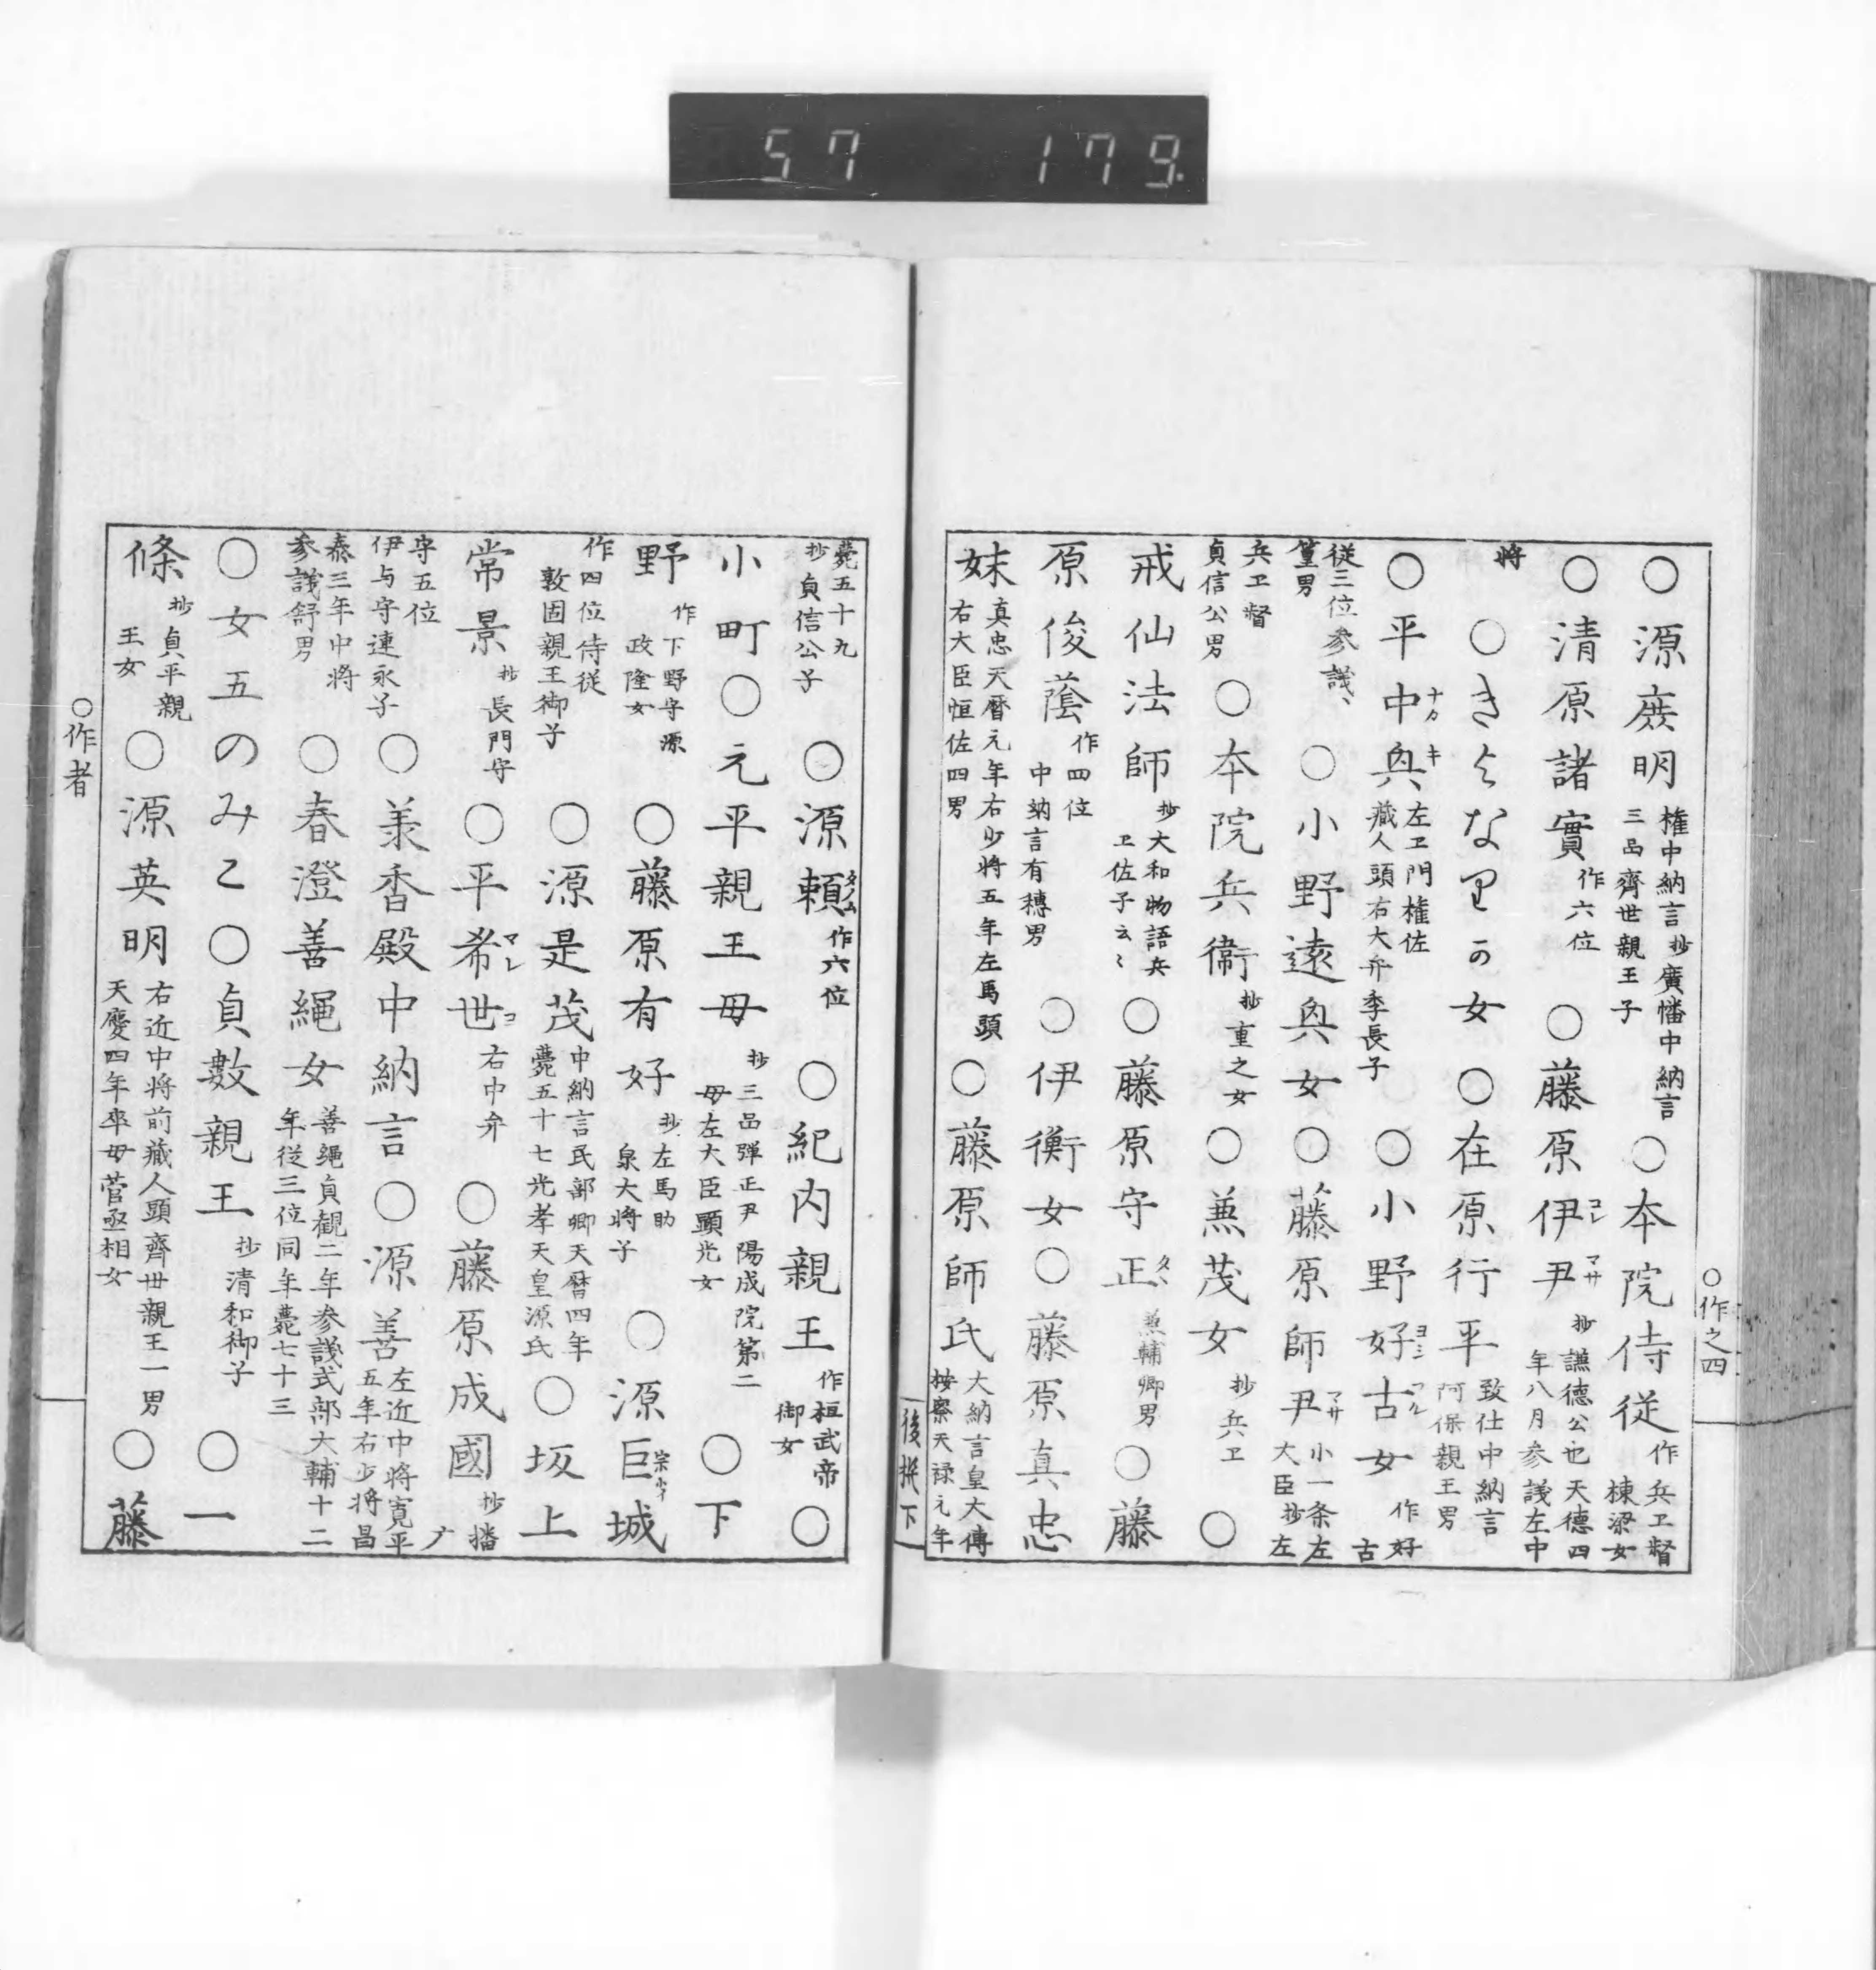 57 179.
○作之四
○源庶明 権中納言抄廣幡中納言 三品齊世親王子 ○本院侍従 作兵ヱ督 棟梁女
○清原諸實 作六位 ○藤原伊尹 コレ マサ 抄謙徳公也天徳四 年八月参議左中
将 ○きよなりの女 ○在原行平 致仕中納言 阿保親王男
○平中興 ナカ キ 左ヱ門権佐 蔵人頭右大弁季長子 ○小野好古女 ヨシ フル 作好 古
従三位参議、 篁男 ○小野遠興女 ○藤原師尹 マサ 小一条左 大臣抄左
兵ヱ督 貞信公男 ○本院兵衛 抄重之女 ○兼茂女 抄兵ヱ ○
戒仙法師 抄大和物語兵 ヱ佐子云〻 ○藤原守正 タヽ 兼輔卿男 ○藤
原俊蔭 作四位 中納言有穂男 ○伊衡女○藤原真忠
妹 真忠天暦元年右少将五年左馬頭 右大臣恒佐四男 ○藤原師氏 大納言皇大傅 按察天禄元年
後撰下
薨五十九 抄貞信公子 ○源頼 タノム 作六位 ○紀内親王 作桓武帝 御女 ○
小町○元平親王母 抄三品弾正尹陽成院第二 母左大臣顕光女 ○下
野 作下野守源 政隆女 ○藤原有好 抄左馬助 泉大将子 ○源巨城 宗イ
作四位侍従 敦固親王御子 ○源是茂 中納言民部卿天暦四年 薨五十七光孝天皇源氏 ○坂上
常景 抄長門守 ○平希世 マレ ヨ 右中弁 ○藤原成國 抄播 广
守五位 伊与守連永子 ○美香殿中納言○源善 左近中将寛平 五年右少将昌
泰三年中将 参議舒男 ○春澄善縄女 善縄貞観二年参議式部大輔十二 年従三位同年薨七十三
○女五のみこ○貞數親王 抄清和御子 ○一
條 抄貞平親 王女 ○源英明 右近中将前蔵人頭齊世親王一男 天慶四年卒母菅丞相女 ○藤
○作者